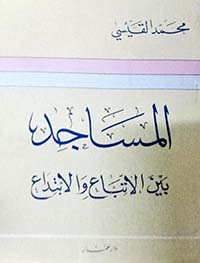 محمد القيسي
المساجد
بين الاتباع والابتداع
دار عمار